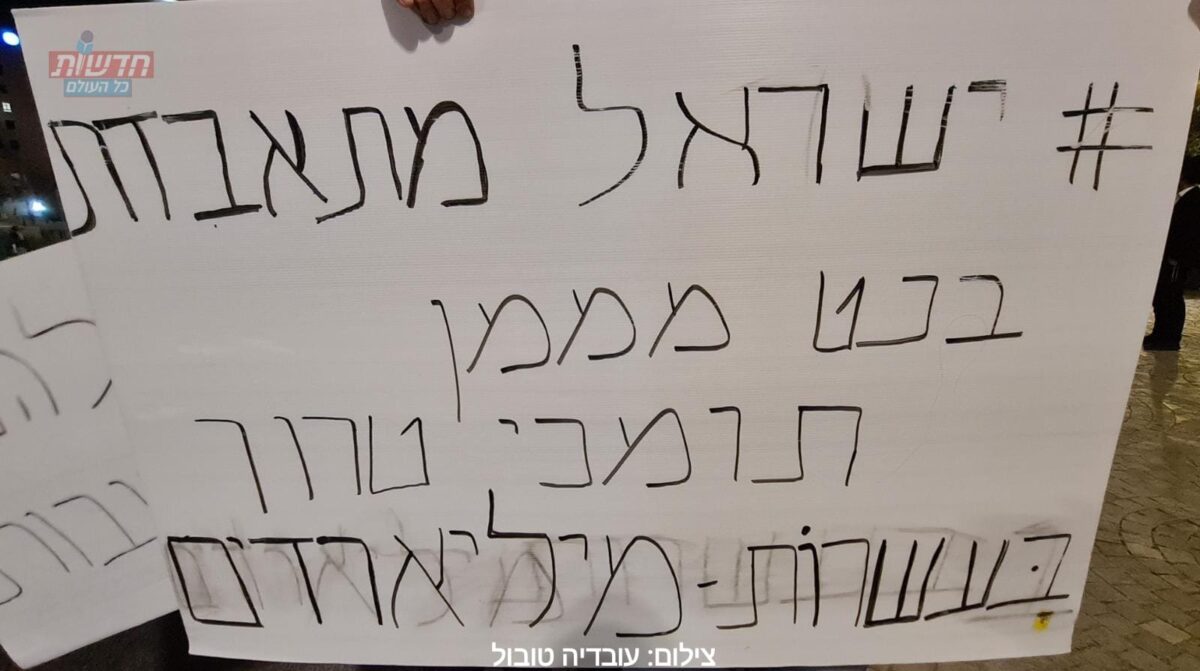 חדשות
כל העולם
# ישראל מתאבדת
בנט מממן
תומכי טרור
בעשרות-מיליארדים
צילום: עובדיה טובול